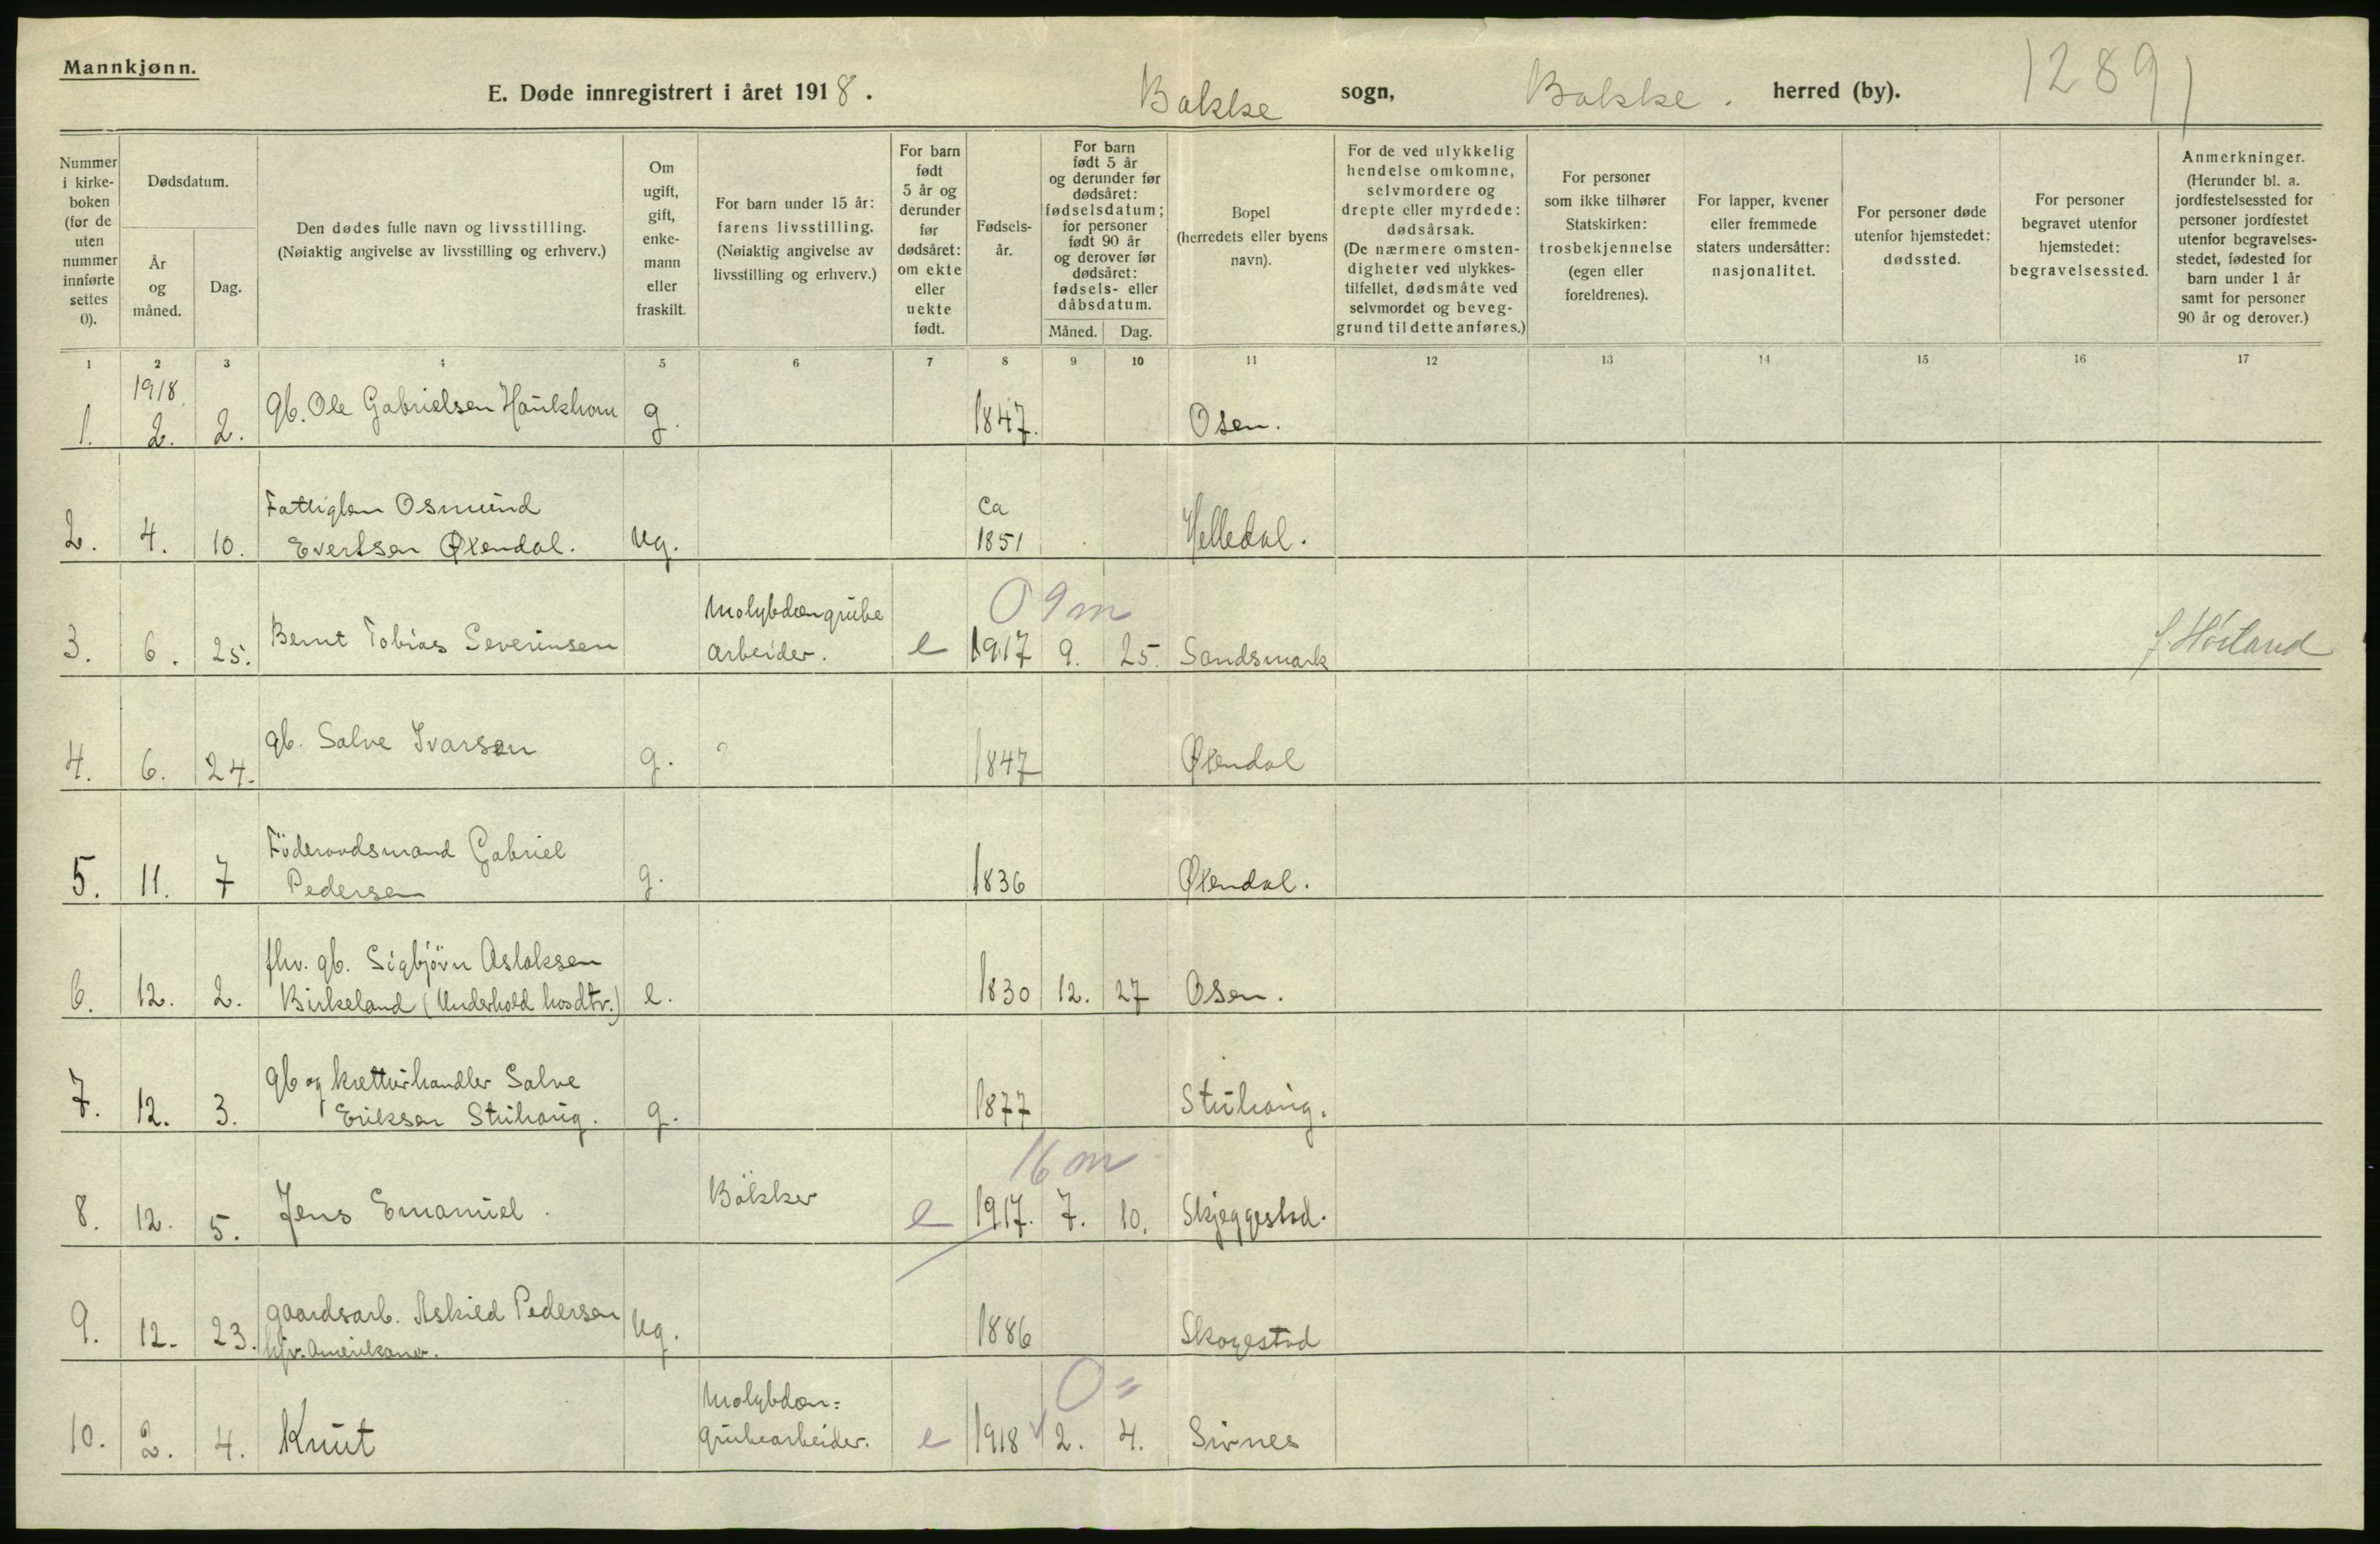 Mannkjønn.
E. Døde innregistrert i året 1918. Bakke sogn, Bakke. herred (by). 1289
Nummer i kirke-boken (for de uten nummer innførte settes 0).
Dødsdatum.
År og måned.
Dag.
Den dødes fulle navn og livsstilling.
(Nøiaktig angivelse av livsstilling og erhverv.)
Om ugift, gift, enke-mann eller fraskilt.
For barn under 15 år: farens livsstilling.
(Nøiaktig angivelse av livsstilling og erhverv.)
For barn født 5 år og derunder før dødsåret: om ekte eller uekte født.
Fødsels-år.
For barn født 5 år og derunder før dødsåret: fødselsdatum; for personer født 90 år og derover før dødsåret: fødsels- eller dåbsdatum.
Måned. Dag.
Bopel (herredets eller byens navn).
For de ved ulykkelig hendelse omkomne, selvmordere og drepte eller myrdede: dødsårsak. (De nærmere omsten-digheter ved ulykkes-tilfellet, dødsmåte ved selvmordet og beveg-grund til dette anføres.)
For personer som ikke tilhører Statskirken: trosbekjennelse (egen eller foreldrenes).
For lapper, kvener eller fremmede staters undersåtter: nasjonalitet.
For personer døde utenfor hjemstedet: dødssted.
For personer begravet utenfor hjemstedet: begravelsessted.
Anmerkninger. (Herunder bl. a. jordfestelsessted for personer jordfestet utenfor begravelses-stedet, fødested for barn under 1 år samt for personer 90 år og derover.)
1 2 3 4 5 6 7 8 9 10 11 12 13 14 15 16 17
1918.
1. 2. 2. gb. Ole Gabrielsen Haukhom g. 1847. Osen.
Fattiglem Osmund Ca
2. 4. 10. Evertsen Øxendal. ug. 1851 Helledal.
Molybdængrube 09m
3. 6. 25. Bernt Tobias Severinsen arbeider. e 1917 9. 25. Sandsmark f. Hörland
4. 6. 24. gb. Salve Ivarsen g. ? 1847 Øxendal
Föderaadsmand Gabriel
5. 11. 7 Pedersen g. 1836 Øxendal.
fhv. gb. Sigbjörn Aslaksen
6. 12. 2. Birkeland (Underhold hos dtr.) e. 1830 12. 27 Osen.
gb og kretturhandler Salve
7. 12. 3. Eriksen Stuhaug. g. 1877 Stuhaug.
16m
8. 12. 5. Jens Emanuel. Bökker e 1917. 7. 10. Skjeggestad.
gaardsarb. Askild Pedersen
9. 12. 23. hjv. Amerikaner. ug. 1886 Skogestad
Molybdæn= 0 "
10. 2. 4. Knut grubearbeider. e 1918 2. 4. Sirnes